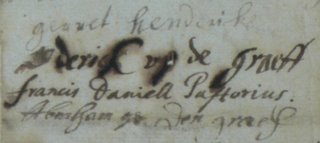 gerret hendericks
derick op de graeff
Francis Daniell Pastorius.
Abraham op Den graef